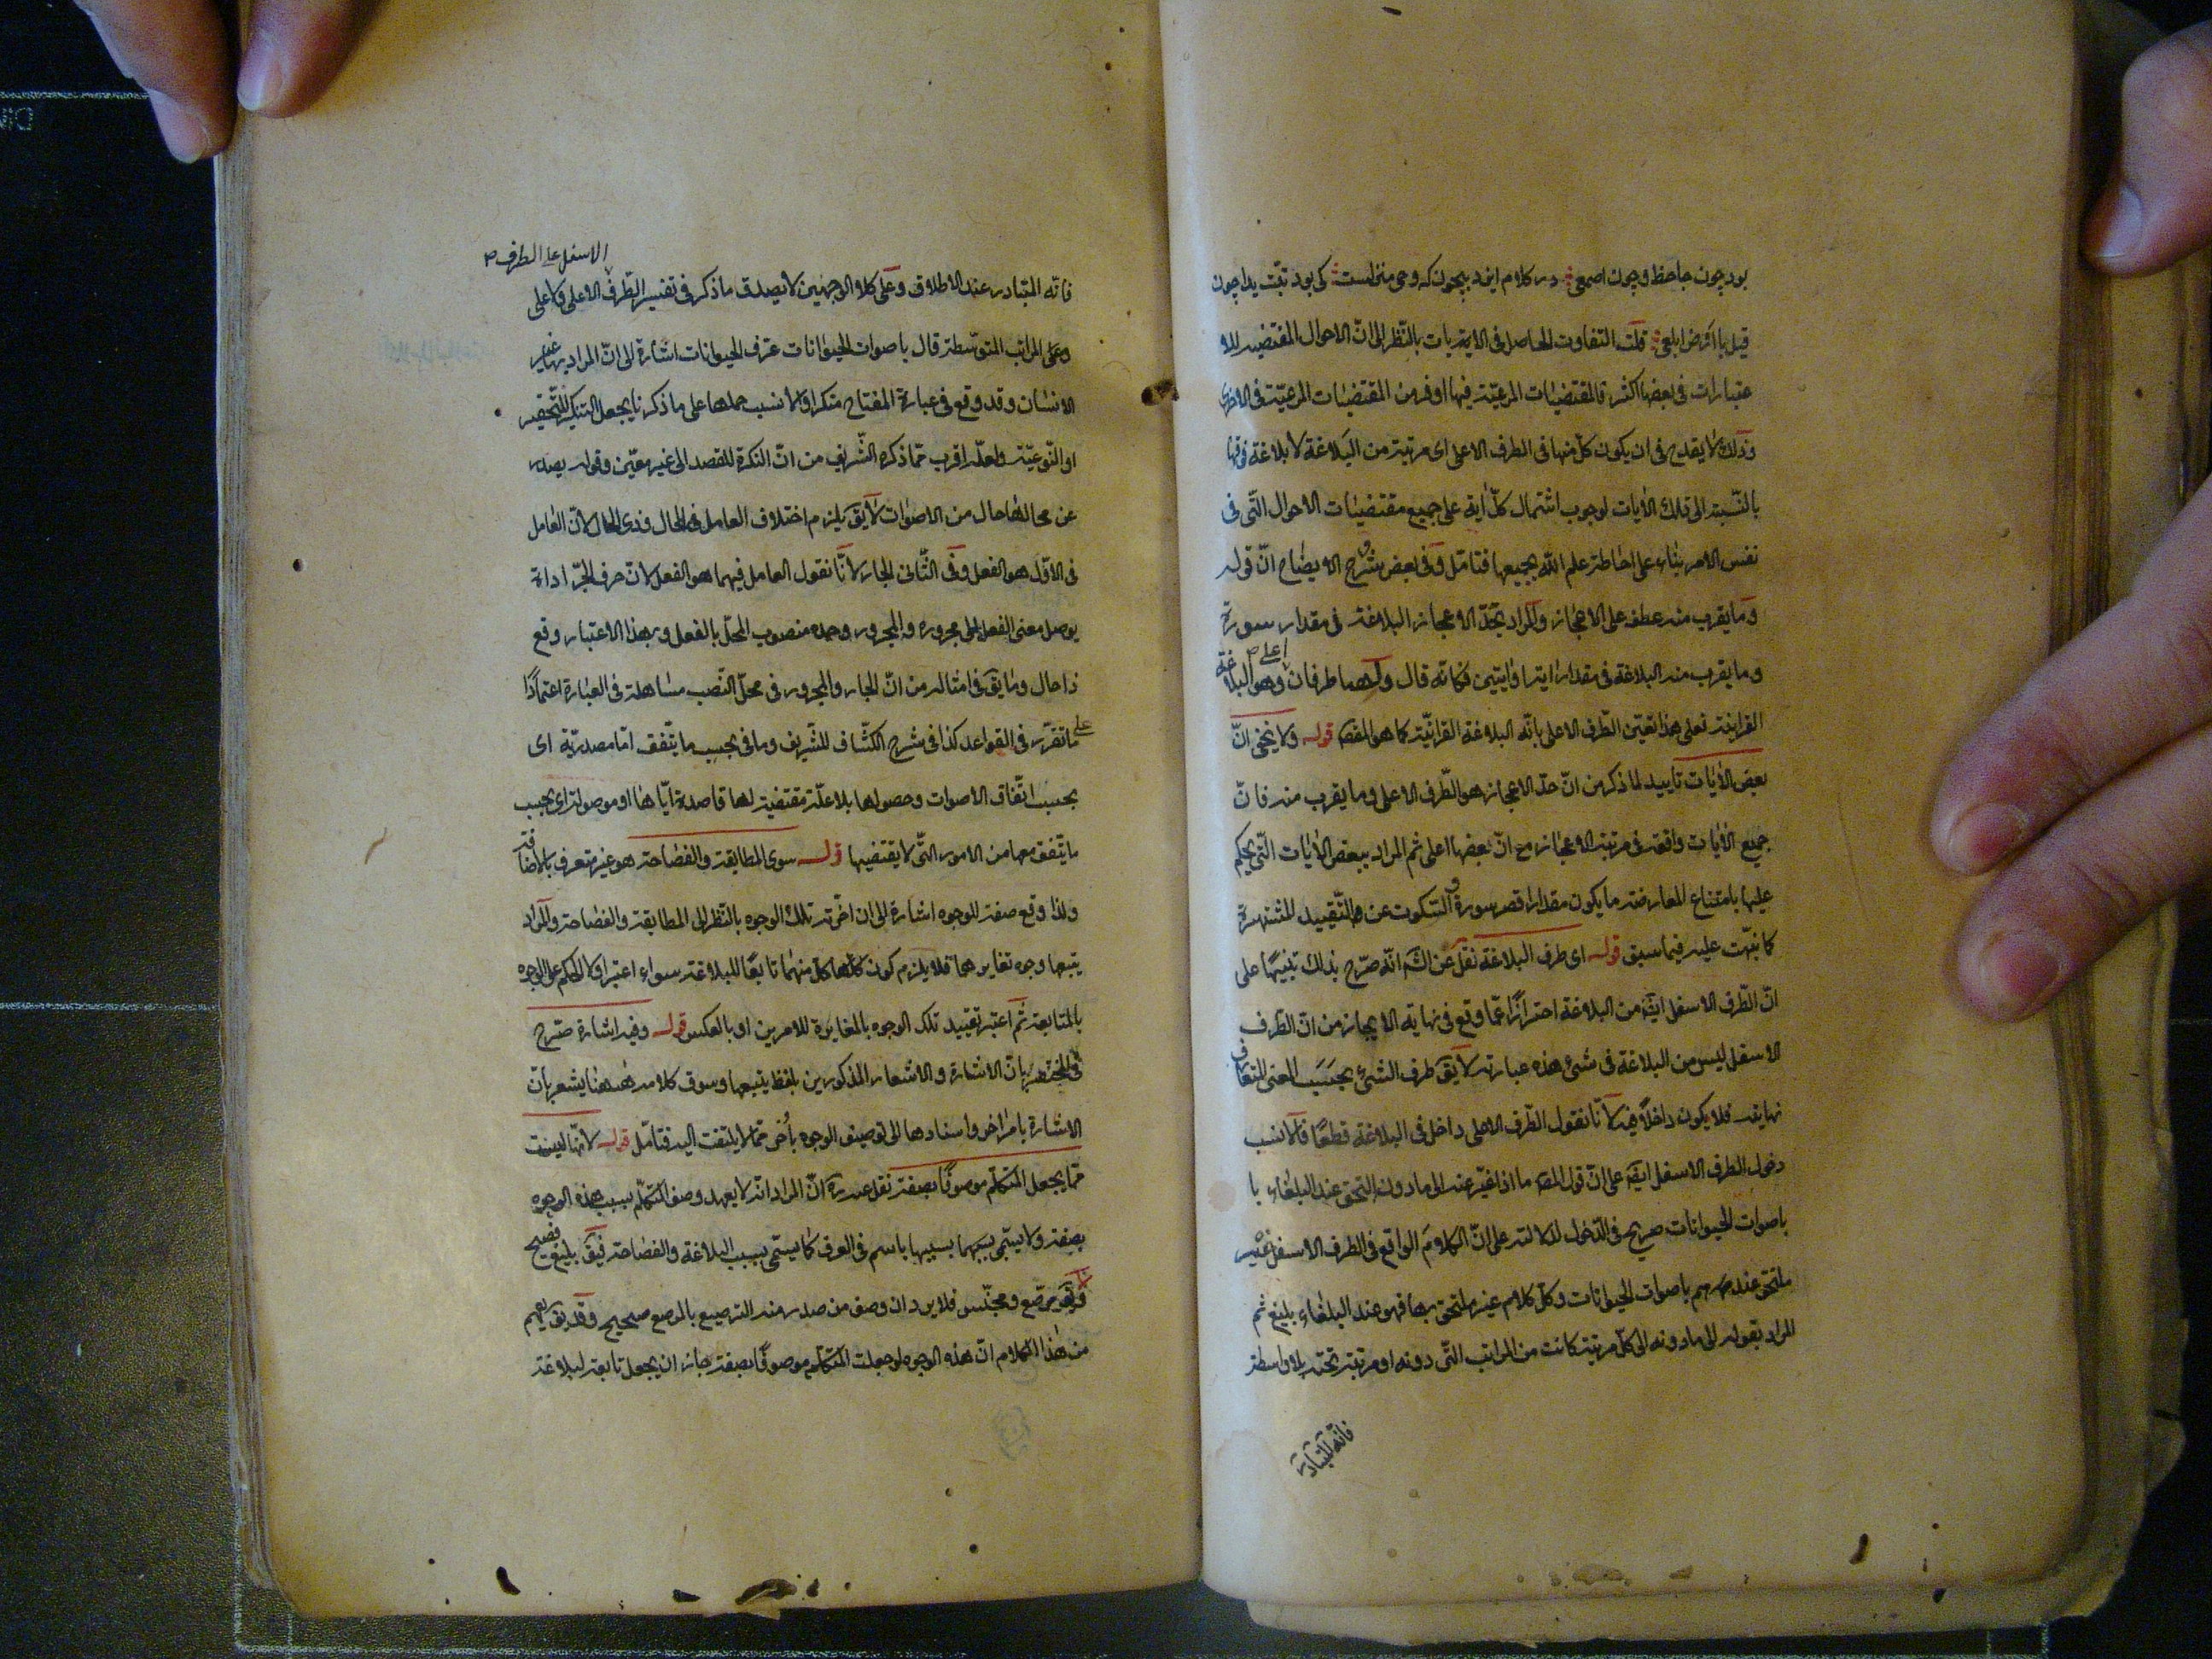 بود چون جاحظ و چون اصمعی در کلام ایزد بیچون که وحی منزلست کی بود تبّت یدا چون
قیل یا ارض ابلعی قلت التفاوت الحاصل فی الایتین بالنّظر الی انّ الاحوال المقتضیه للا
عتبارات فی بعضها اکثر فالمقتضیات المرعیّة فیها اوفر من المقتضیات المرعیّة فی الاخری
وذلك لا یقدح فی ان یکون کلّ منها فی الطرف الاعلی ای مرتبة من البلاغة لا بلاغة فوقها
بالنّسبة الی تلك الآیات لوجوب اشتمال کلّ ایة علی جمیع مقتضیات الاحوال الّتی فی
نفس الامر بناء علی احاطة علم اللّه بجمیعها فتامّل وفی بعض شروح الایضاح انّ قوله
وما یقرب منه عطف علی الاعجاز والمراد بحدّ الاعجاز البلاغة فی مقدار سورة
وما یقرب منه البلاغة فی مقدار ایة او ایتین فکانّه قال ولها طرفان اعلی وهو البلاغة
القرانیة فعلی هذا تعیّن الطّرف الاعلی بانّه البلاغة القرانیّة کما هو المقصه قوله ولا یخفی انّ
بعض الآیات تایید لما ذکر من انّ حدّ الاعجاز هو الطّرف الاعلی وما یقرب منه فانّ
جمیع الآیات واقعة فی مرتبة الاعجاز مع انّ بعضها اعلی ثم المراد ببعض الآیات الّتی یحکم
علیها بامتناع المعارضة ما یکون مقدار اقصر سورة والسّکوت عن هذا التّقیید للشّهرة
کما نبّهت علیه فیما سبق قوله ای طرف البلاغة نقل عن الشه انّه صرّح بذلك تنبیهًا علی
انّ الطّرف الاسفل ایضه من البلاغة احترازًا عمّا وقع فی نهایة الایجاز من انّ الطّرف
الاسفل لیس من البلاغة فی شیء هذه عبارته لا یق طرف الشیء بحسب المعنی المتعارف
نهایته فلا یکون داخلاً فیه لانّا نقول الطّرف الاعلی داخل فی البلاغة قطعًا فالانسب
دخول الطرف الاسفل ایضه علی انّ قول المصه ما اذا غیّر عنه الی مادونه التحق عند البلغاء با
باصوات الحیوانات صریح فی الدّخول لدلالته علی انّ الکلام الواقع فی الطرف الاسفل غیر
ملتحق عندهم باصوات الحیوانات وکلّ کلام غیر ملتحق بها فهو عند البلغاء بلیغ ثم
المراد بقوله الی مادونه الی کلّ مرتبة کانت من المراتب الّتی دونه او مرتبة تحته بلا واسطة
فانّه المتبادر
الاسفل علی الطرف
فانّه المتبادر عند الاطلاق وعلی کلا الوجهین لا یصدق ما ذکر فی تفسیر الطّرف الاعلی ولا علی
وعلی المراتب المتوسّطة قال باصوات الحیوانات عرّف الحیوانات اشارة الی انّ المراد بها غیر
الانسان وقد وقع فی عبارة المفتاح منکرا والانسب حملها علی ما ذکرنا بجعل التنکیر للتّحقیر
او النّوعیّة ولعلّه اقرب ممّا ذکره الشّریف من انّ النکرة للقصد الی غیر معیّن وقوله یصدر
عن محالها حال من الاصوات لا یق یلزم اختلاف العامل فی الحال وذی الحال لانّ العامل
فی الاوّل هو الفعل وفی الثّانی الجار لانّا نقول العامل فیهما هو الفعل لانّ حرف الجرّ اداة
یوصل معنی الفعل الی مجروره والمجرور وحده منصوب المحلّ بالفعل وبهذا الاعتبار وقع
ذا حال وما یق فی امثاله من انّ الجار والمجرور فی محلّ النّصب مساهلة فی العبارة اعتمادًا
علی ما تقرّر فی القواعد کذا فی شرح الکشّاف للشّریف وما فی بحسب ما یتّفق امّا مصدریّة ای
بحسب اتّفاق الاصوات وحصولها بلا علّة مقتضیة لها قاصدة ایّاها او موصولة ای بحسب
ما یتّفق معها من الامور الّتی لا یقتضیها قوله سوی المطابقة والفصاحة هو غیر متعرف بالاضافة
ولذا وقع صفة للوجوه اشارة الی ان اخّرته تلك الوجوه بالنّظر الی المطابقة والفصاحة والمراد
یتبعها وجوه تغایرهما فلا یلزم کون کلّها کلّ منهما تابعًا للبلاغة سواء اعتبر اوّلا الحکم علی الوجوه
بالمتابعة ثمّ اعتبر تقیید تلك الوجوه بالمغایرة للامرین او بالعکس قوله وفیه اشارة صرّح
فی المختصر بانّ الاشارة والاشعار المذکورین بلفظ یتبعها وسوق کلامه ههنا یشعر بانّ
الاشارة بامر اخر واسنادها الی توصیف الوجوه باُخر ممّا لا یلتفت الیه فتامّل قوله لانّها لیست
ممّا یجعل المتکلّم موصوفًا بصفة نقل عنه ره انّ المراد انّه لا یعهد وصف المتکلّم بسبب هذه الوجوه
بصفة ولا یسمّی بسببها باسم فی العرف کما یسمّی بسبب البلاغة والفصاحة فیق بلیغ فصیح
مرصّع ومجنّس فلا یرد ان وصف من صدر منه الترصیع بالمرصع صحیح وقد یق یفهم
من هذا الکلام انّ هذه الوجوه لو جعلت المتکلّم موصوفًا بصفة جاز ان یجعل تابعة لبلاغة